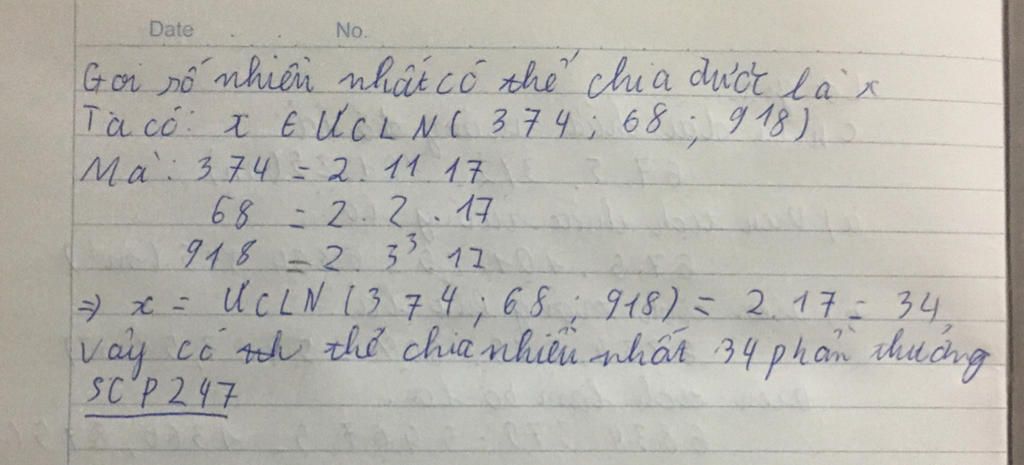 Date . . No.
Gọi số nhiều nhất có thể chia được là x
Ta có: x ∈ ƯCLN( 374 ; 68 ; 918)
Mà: 374 = 2. 11 17
68 = 2. 2. 17
918 = 2. 3³ 17
⇒ x = ƯCLN (374 ; 68 ; 918) = 2.17 = 34
Vậy có thể chia nhiều nhất 34 phần thưởng
SCP247